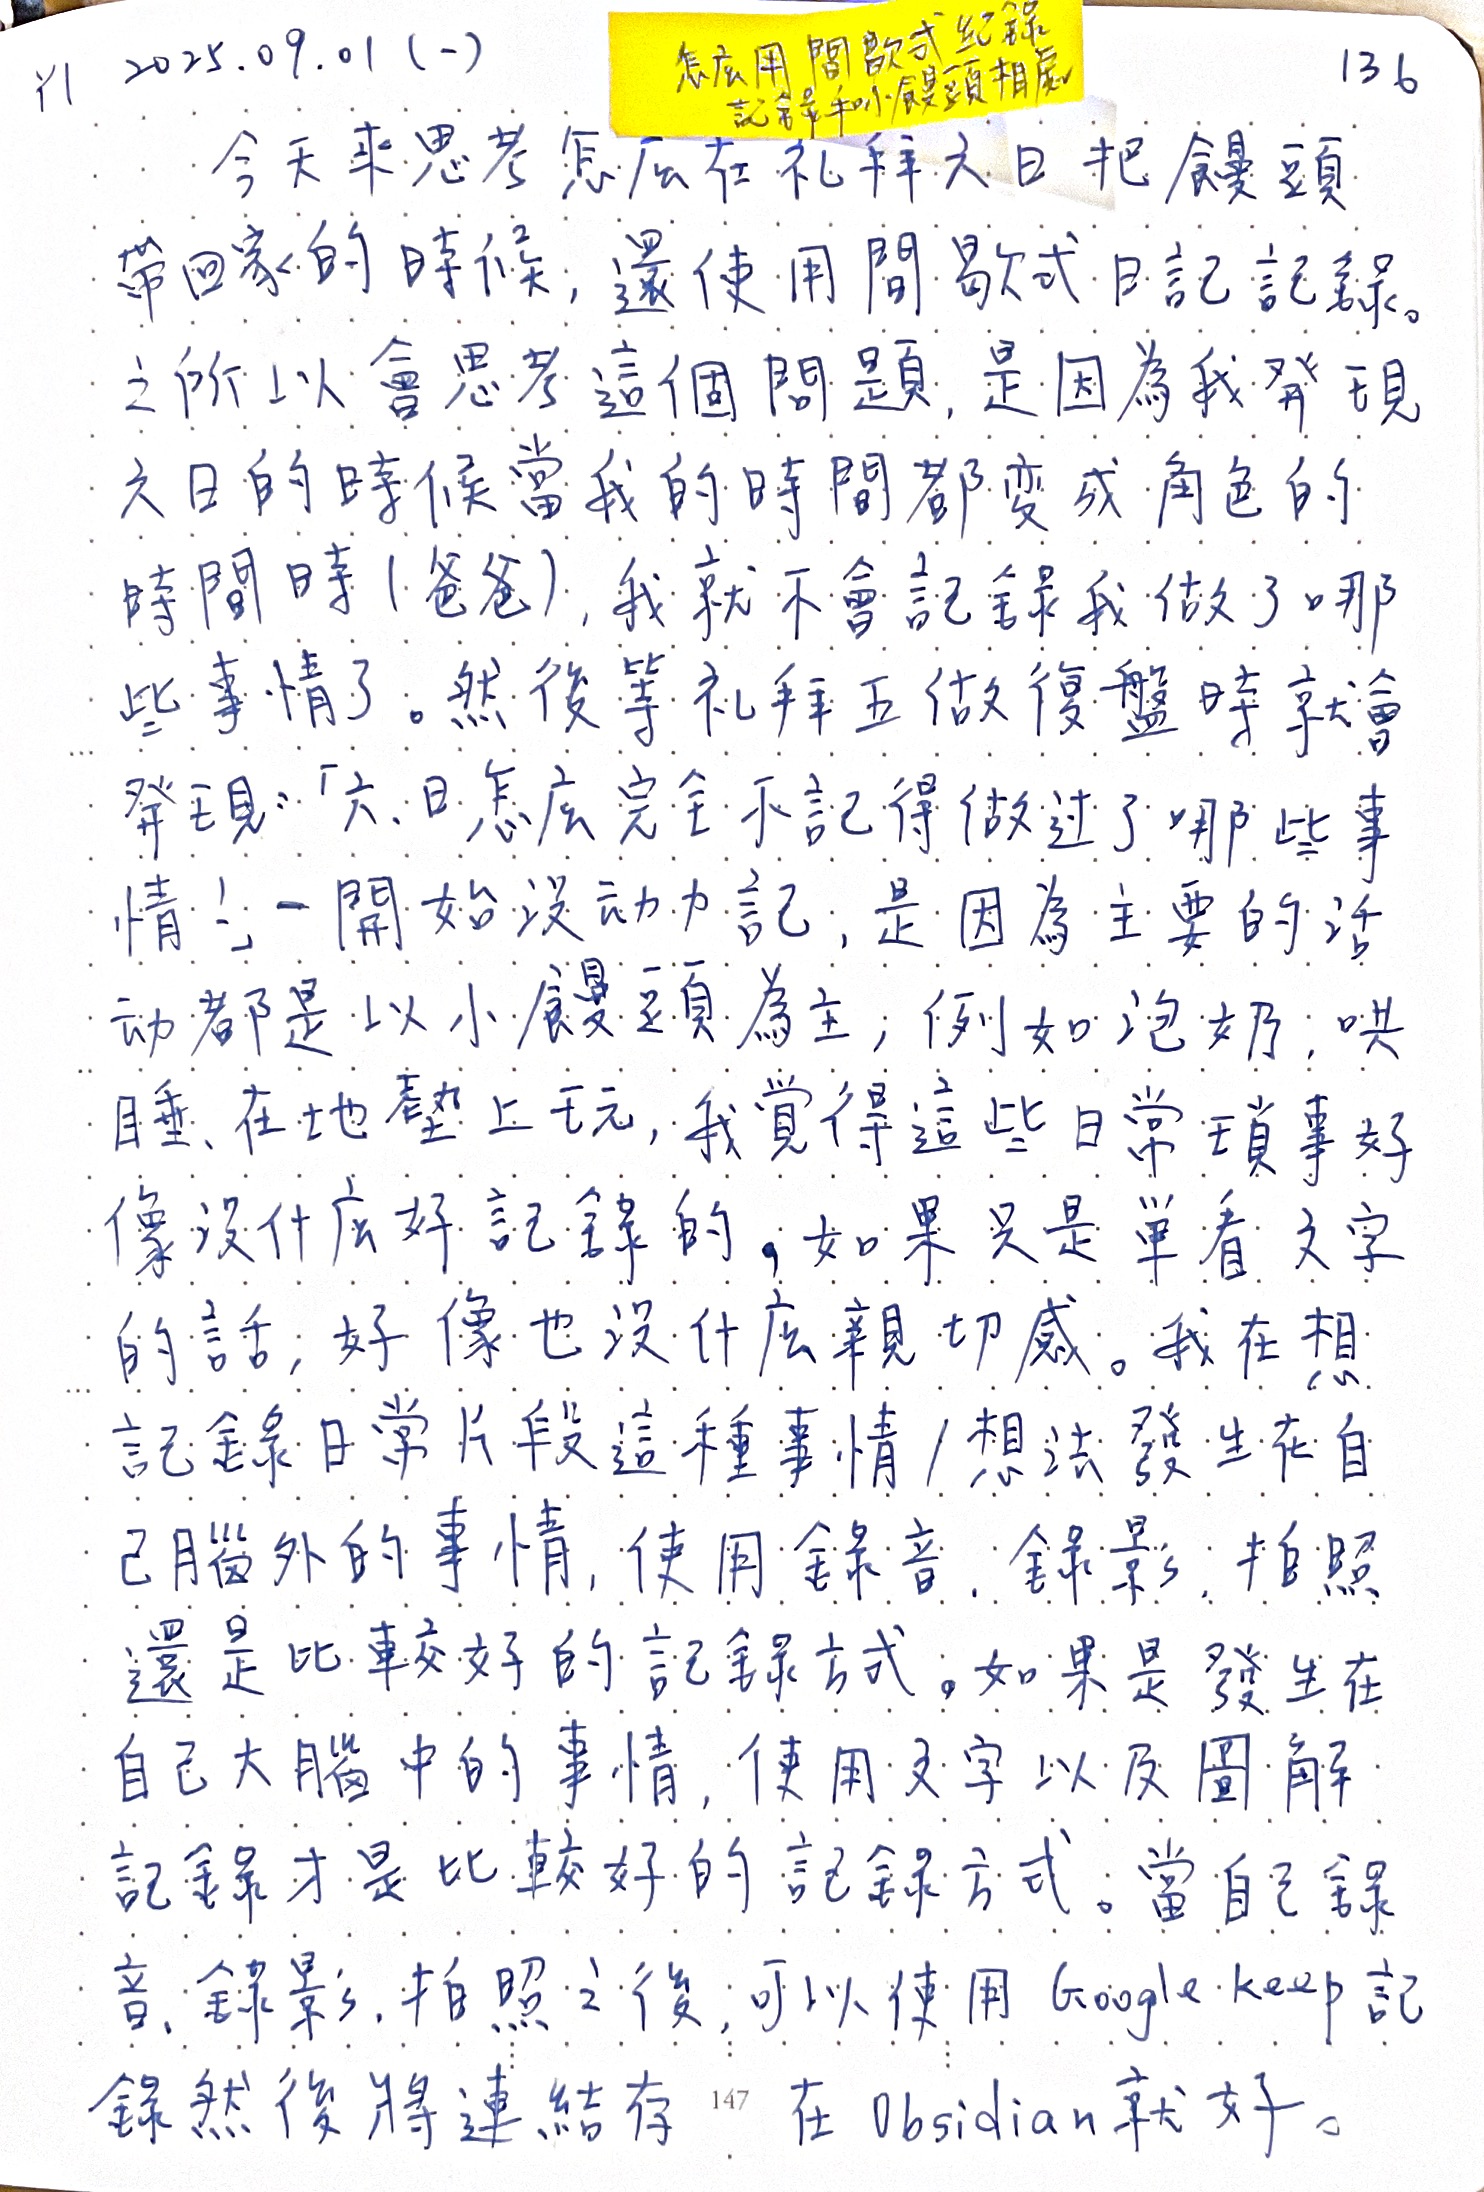 怎広用間歇式紀錄
記錄和小饅頭相處
Y1 2025.09.01(一)
136
今天來思考怎広在礼拜六日把饅頭
帶回家的時候,還使用間歇式日記記錄。
之所以會思考這個問題,是因為我発現
六日的時候當我的時間都変成角色的
時間時(爸爸),我就不會記錄我做了哪
些事情了。然後等礼拜五做復盤時就會
発現:「六、日怎広完全不記得做过了哪些事
情!」一開始没动力記,是因為主要的活
动都是以小饅頭為主,例如泡奶,哄
睡、在地墊上玩,我覚得這些日常瑣事好
像没什広好記錄的。如果只是単看文字
的話,好像也没什広親切感。我在想
記錄日常片段這種事情/想法發生在自
己腦外的事情,使用錄音、錄影、拍照
還是比較好的記錄方式。如果是發生在
自己大腦中的事情,使用文字以及圖解
記錄才是比較好的記錄方式。當自己錄
音、錄影、拍照之後,可以使用Google keep記
錄然後將連結存在Obsidian就好。
147